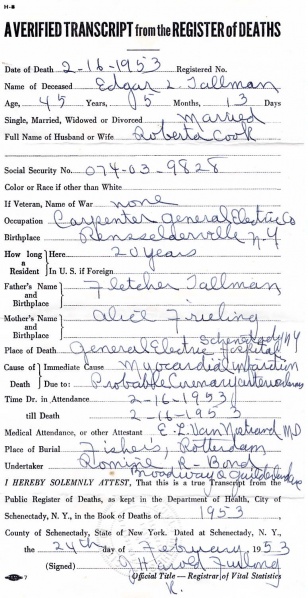 H-8
A VERIFIED TRANSCRIPT from the REGISTER of DEATHS
Date of Death 2-16-1953 Registered No.
Name of Deceased Edgar L. Tallman
Age, 45 Years, 5 Months, 13 Days
Single, Married, Widowed or Divorced Married
Full Name of Husband or Wife Roberta Cook
Social Security No. 074-03-9828
Color or Race if other than White
If Veteran, Name of War none
Occupation Carpenter General Electric Co
Birthplace Rensselderville N-Y
How long a Resident Here 20 years
In U. S. if Foreign
Father's Name and Birthplace Fletcher Tallman
Mother's Name and Birthplace Alice Frieling
Schenectady NY
Place of Death General Electric Hospital
Cause of Death Immediate Cause Myocardial Infarction
Due to: Probable Coronary
Time Dr. in Attendance 2-16-1953
till Death 2-16-1953
Medical Attendant, or other Attestant E. L. Van Nostrand M.D
Place of Burial Fishers, Rotterdam
Undertaker Romine R-Bond
Broadway &
I HEREBY SOLEMNLY ATTEST, That this is a true Transcript from the
Public Register of Deaths, as kept in the Department of Health, City of
Schenectady, N. Y., in the Book of Deaths of 1953
County of Schenectady, State of New York. Dated at Schenectady, N. Y.,
the 24th day of February 1953
(Signed) J Harold Furlong
7 Official Title — Registrar of Vital Statistics